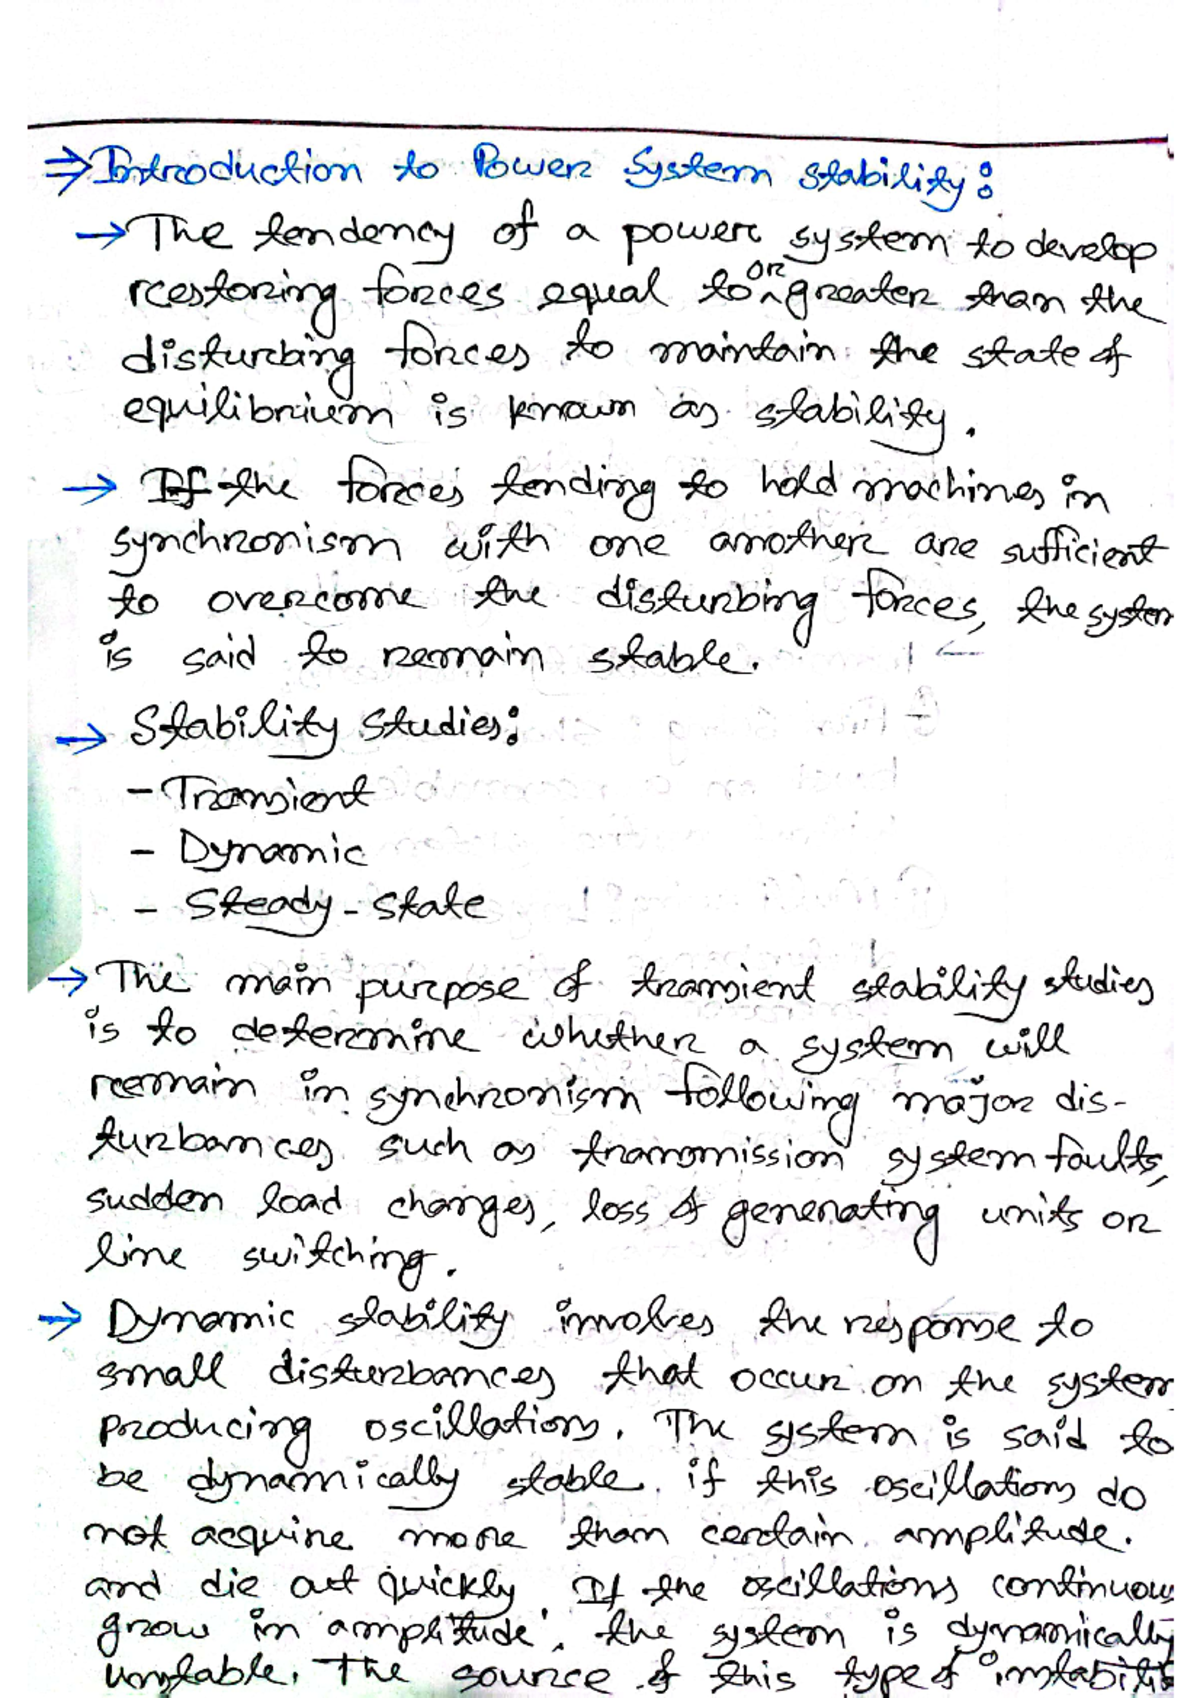 ⇒ Introduction to Power System Stability:
→ The tendency of a power system to develop
restoring forces equal to or greater than the
disturbing forces to maintain the state of
equilibrium is known as stability.
→ If the forces tending to hold machines in
synchronism with one another are sufficient
to overcome the disturbing forces, the system
is said to remain stable.
→ Stability Studies:
- Transient
- Dynamic
- Steady-state
→ The main purpose of transient stability studies
is to determine whether a system will
remain in synchronism following major dis-
turbances such as transmission system faults,
sudden load changes, loss of generating units or
line switching.
→ Dynamic stability involves the response to
small disturbances that occur on the system
producing oscillations. The system is said to
be dynamically stable if this oscillations do
not acquire more than certain amplitude.
and die out quickly. If the oscillations continuous
grow in amplitude, the system is dynamically
unstable. The source of this type of instabilit